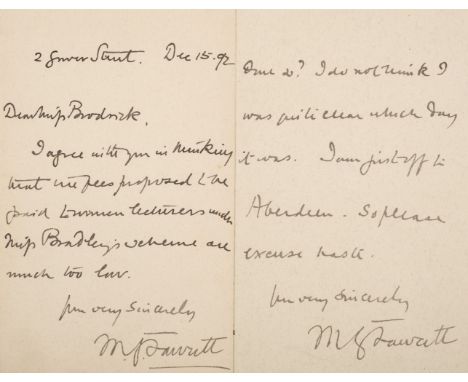 2 Gower Street. Dec 15. 92
Dear Miss Brodrick,
I agree with you in thinking
that the fees proposed to be
paid to women lecturers under
Miss Bradley's scheme are
much too low.
Yrs very sincerely
M. G. Fawcett
I do not think I
was quite clear which day
it was. I am just off to
Aberdeen. So please
excuse haste.
Yrs very sincerely
M G Fawcett